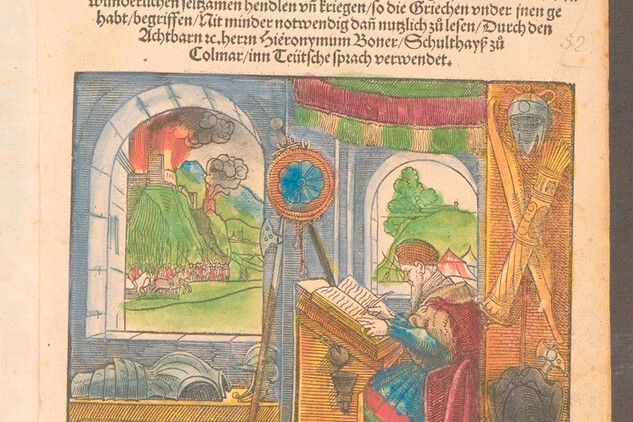 wunderlichen seltzamen hendlen vñ kriegen/so die Griechen vnder jnen ge
habt/begriffen/Nit minder notwendig dañ nutzlich zů lesen/Durch den
Achtbarn ꝛc. herrn Hieronymum Boner/Schulthayß zů
Colmar/inn Teütsche sprach verwendet.
52